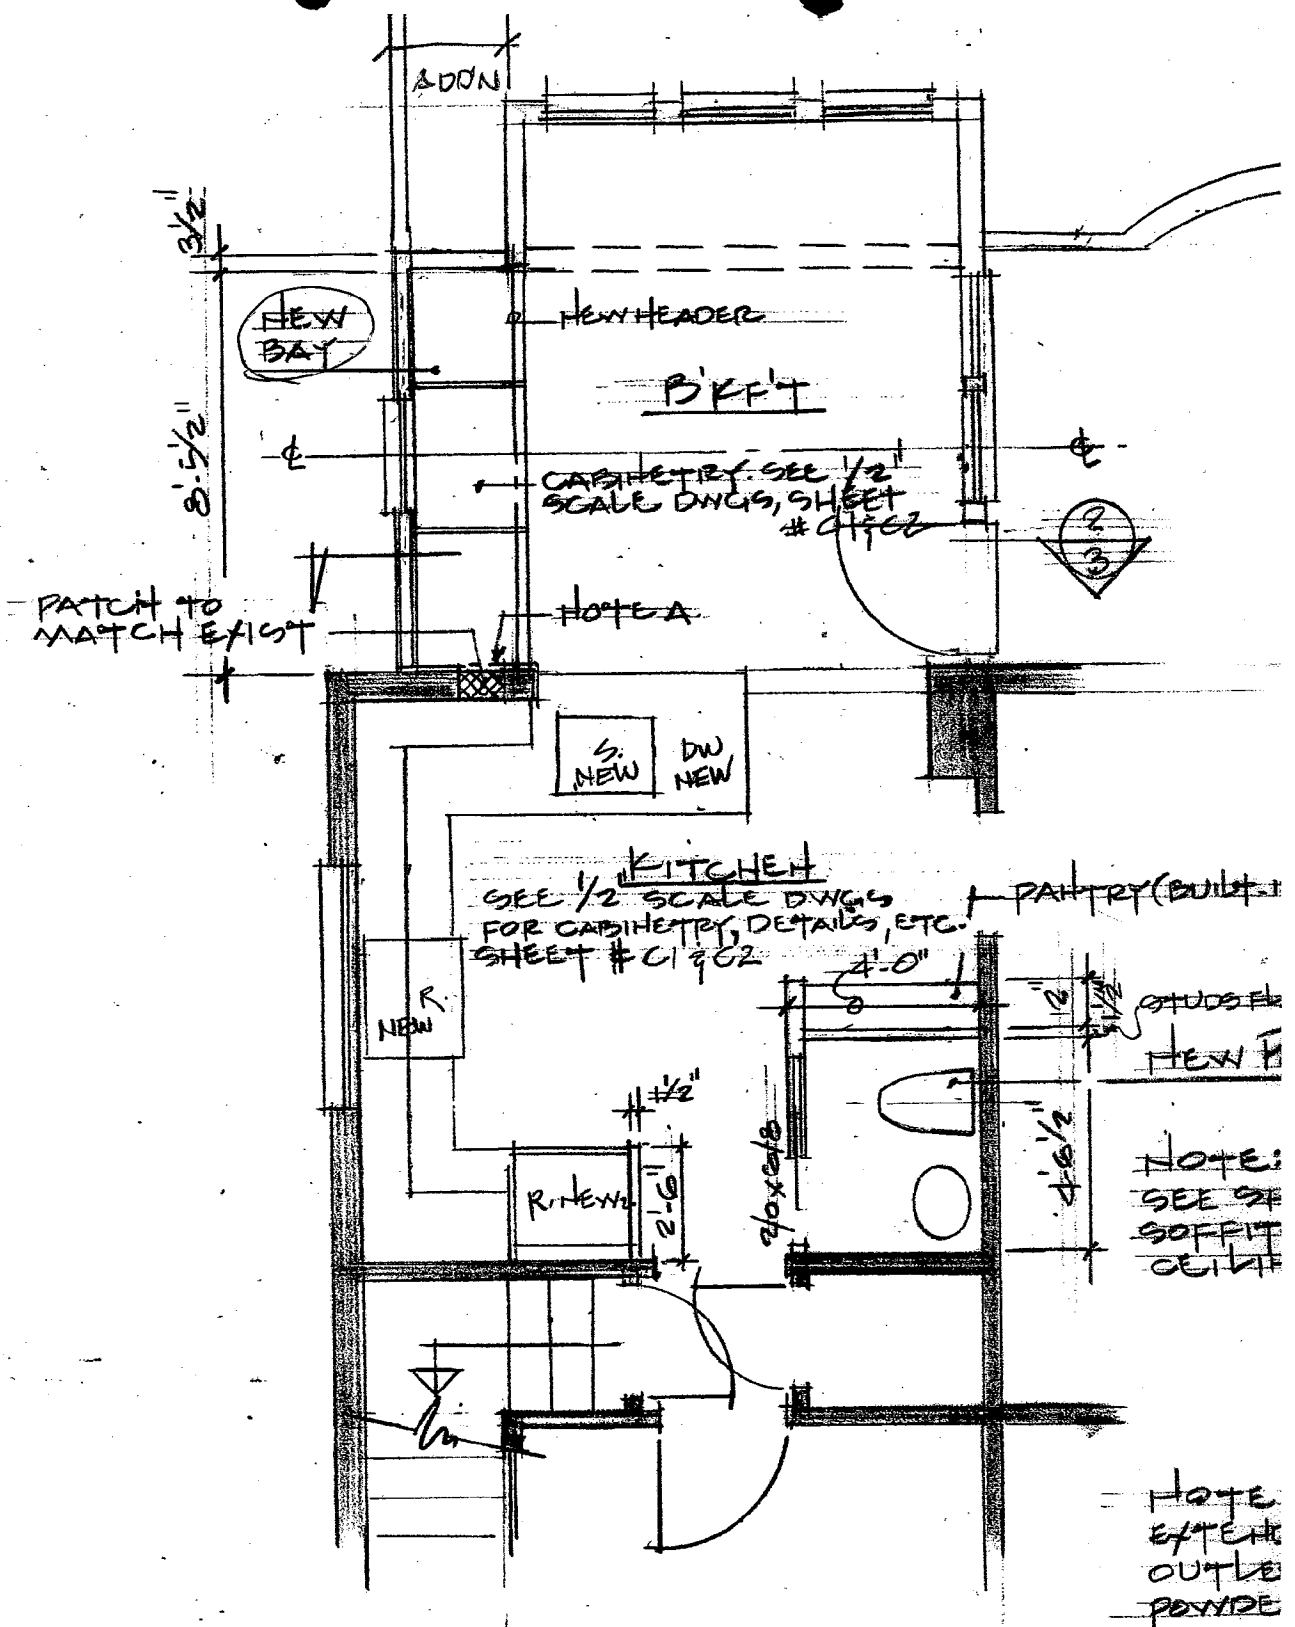 ADD'N
3 1/2"
NEW
BAY
NEW HEADER
B'KF'T
8'-5 1/2"
CABINETRY. SEE 1/2"
SCALE DWGS, SHEET
# C1 & C2
2
3
PATCH TO
MATCH EXIST
NOTE A
S.
NEW
DW
NEW
KITCHEN
SEE 1/2" SCALE DWGS
FOR CABINETRY, DETAILS, ETC.
SHEET # C1 & C2
PANTRY (BUILT-
4'-0"
R.
NEW
STUDS FL
NEW
4 1/2"
2'-6"
R. NEW
2/0 x 6/8
4'-8 1/2"
NOTE:
SEE SH
SOFFIT
CEILIN
NOTE
EXTEND
OUTLE
POWDE